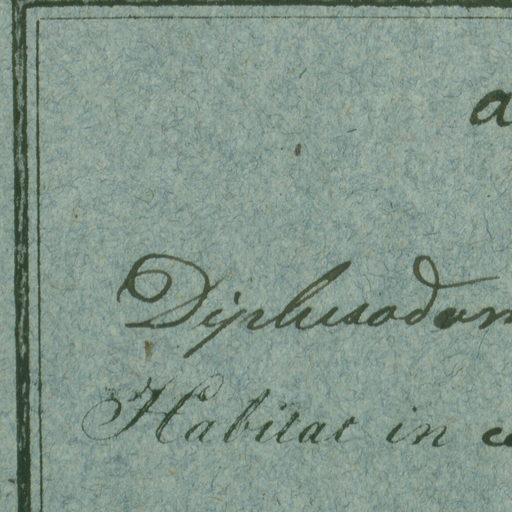 a
Diplusodon
Habitat in c